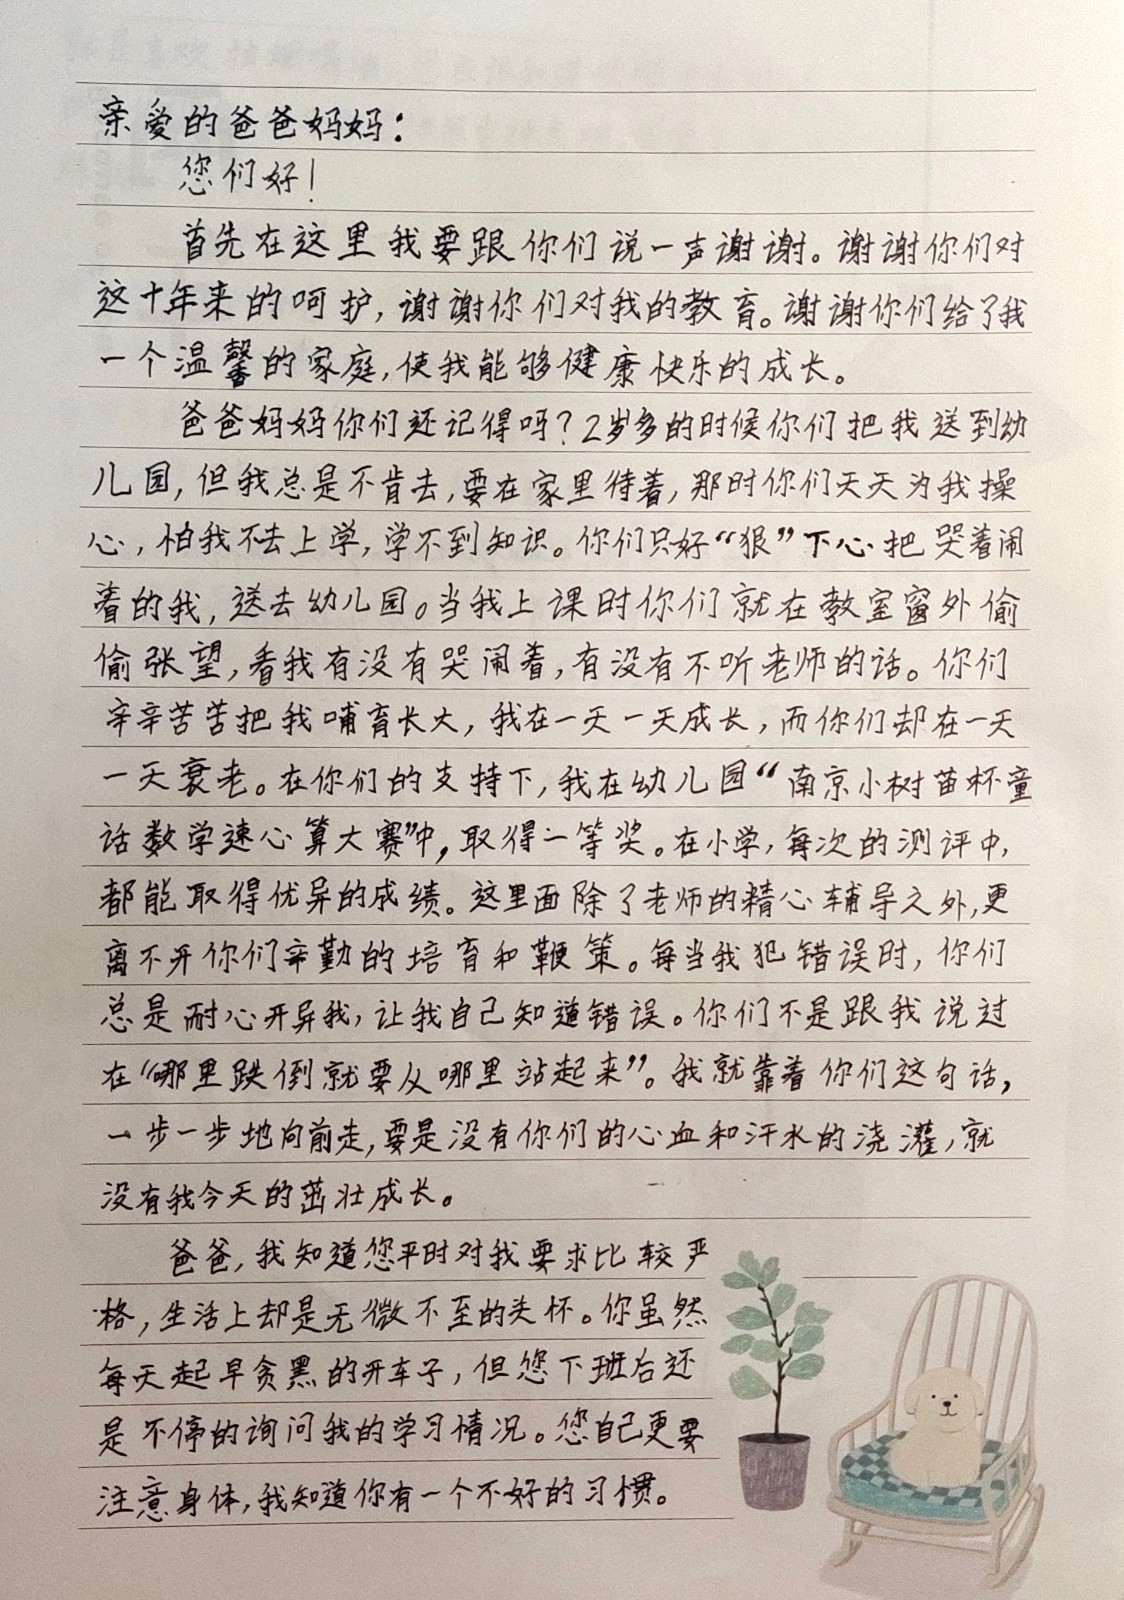 亲爱的爸爸妈妈:
您们好!
首先在这里我要跟你们说一声谢谢。谢谢你们对
这十年来的呵护,谢谢你们对我的教育。谢谢你们给了我
一个温馨的家庭,使我能够健康快乐的成长。
爸爸妈妈你们还记得吗?2岁多的时候你们把我送到幼
儿园,但我总是不肯去,要在家里待着,那时你们天天为我操
心,怕我不去上学,学不到知识。你们只好“狠”下心把哭着闹
着的我,送去幼儿园。当我上课时你们就在教室窗外偷
偷张望,看我有没有哭闹着,有没有不听老师的话。你们
辛辛苦苦把我哺育长大,我在一天一天成长,而你们却在一天
一天衰老。在你们的支持下,我在幼儿园“南京小树苗杯童
话数学速心算大赛”中,取得一等奖。在小学,每次的测评中,
都能取得优异的成绩。这里面除了老师的精心辅导之外,更
离不开你们辛勤的培育和鞭策。每当我犯错误时,你们
总是耐心开异我,让我自己知道错误。你们不是跟我说过
在“哪里跌倒就要从哪里站起来”。我就靠着你们这句话,
一步一步地向前走,要是没有你们的心血和汗水的浇灌,就
没有我今天的茁壮成长。
爸爸,我知道您平时对我要求比较严
格,生活上却是无微不至的关怀。你虽然
每天起早贪黑的开车子,但您下班后还
是不停的询问我的学习情况。您自己更要
注意身体,我知道你有一个不好的习惯。